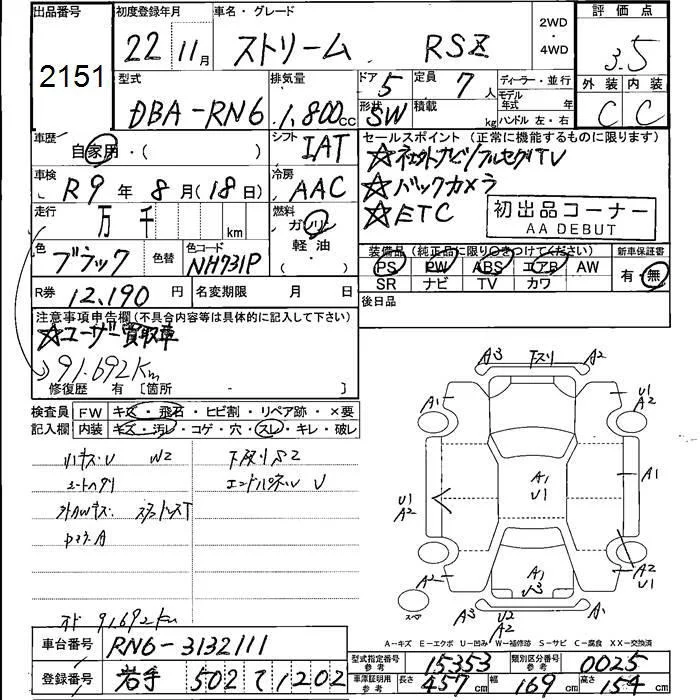 出品番号 初度登録年月 車名・グレード 2WD・4WD 評価点
2151 22 11月 ストリーム RSZ 3.5
型式 排気量 ドア 5 定員 7人 ディーラー・並行 外装 内装
DBA-RN6 1,800cc 形状 SW 積載 kg モデル年式 年 ハンドル 左・右 C C
車歴 自家用・( ) シフト IAT セールスポイント (正常に機能するものに限ります)
車検 R9年8月(18日) 冷房 AAC ☆バックカメラ
走行 万 千 km 燃料 ガソリン ☆ETC 初出品コーナー
軽油 AA DEBUT
色 ブラック 色替 色コード NH731P ( ) 装備品 (純正品に限り○をつけてください) 新車保証書
PS PW ABS エアB AW 有・無
R券 12,190円 名変期限 月 日 SR ナビ TV カワ
注意事項申告欄(不具合内容等は具体的に記入して下さい) 後日品
☆ユーザー買取車
91.692Km
修復歴 有 〔箇所 - 〕
検査員 FW キズ・飛石・ヒビ割・リペア跡・×要
記入欄 内装 キズ・汚レ・コゲ・穴・スレ・キレ・破レ
A3 A2
A1 U1 A2
A1
U1 A2
A1 U1
A2 A2 U1
A1
スペア
A3 U2 A2 A1
91.692Km
A-キズ E-エクボ U-凹み W-補修跡 S-サビ C-腐食 XX-交換済
車台番号 RN6-3132111
型式指定番号 参考 15353 類別区分番号 参考 0025
登録番号 岩手 502 て 1202
車庫証明用 参考 長さ 457cm 幅 169cm 高さ 154cm